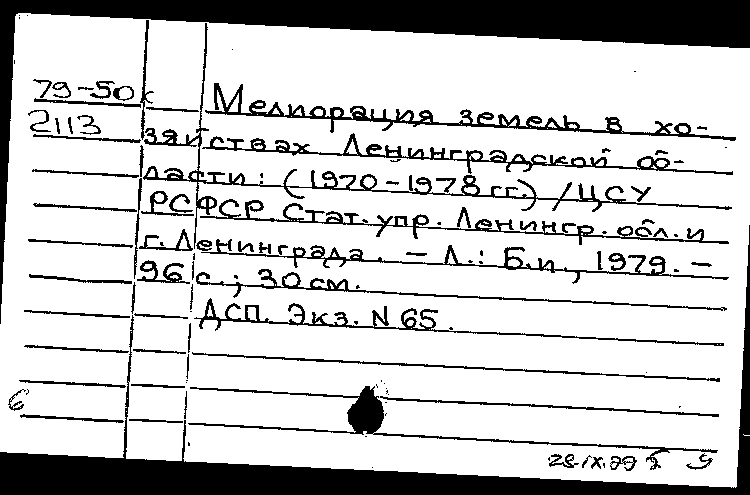 79-50к Мелиорация земель в хо-
2113 зяйствах Ленинградской об-
ласти: (1970-1978 гг.) / ЦСУ
РСФСР. Стат. упр. Ленингр. обл. и
г. Ленинграда. - Л.: Б.и., 1979. -
96 с.; 30 см.
ДСП. Экз. N 65.
6
28.IX.79